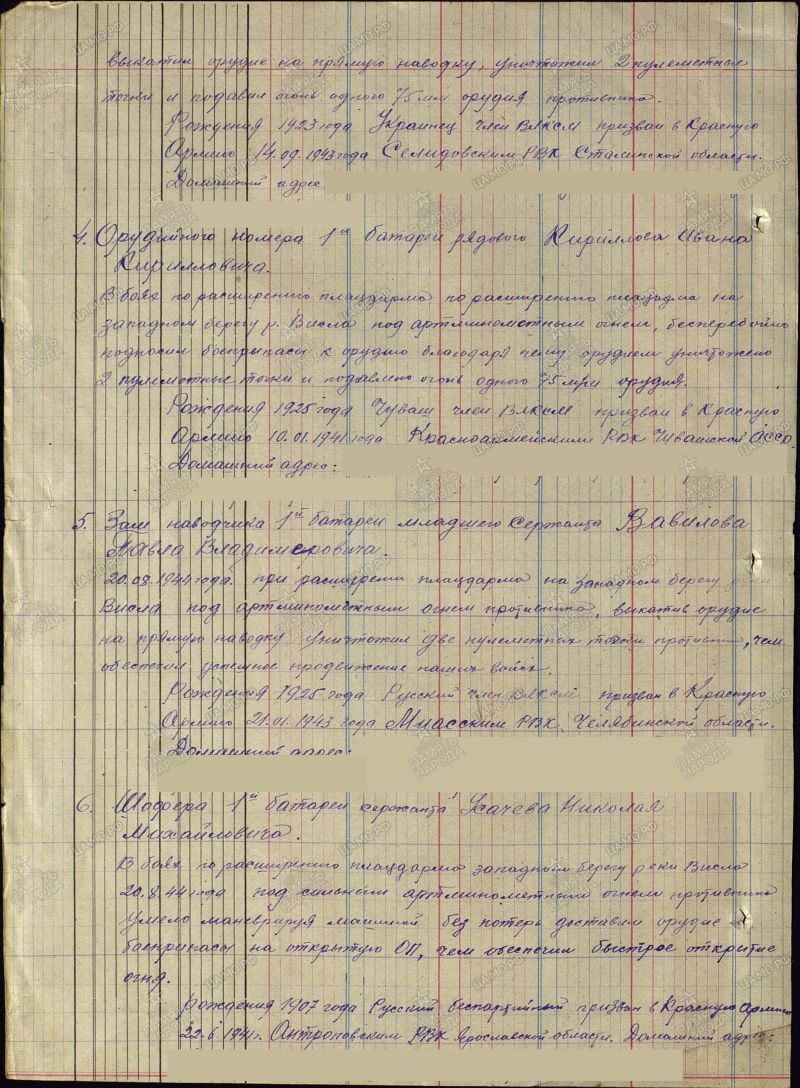 выкатил орудие на прямую наводку, уничтожил 2 пулеметные
точки и подавил огонь одного 75 мм орудия противника.
Рождения 1923 года Украинец член ВЛКСМ призван в Красную
Армию 14.09.1943 года Селидовским РВК Сталинской области.
Домашний адрес.
4. Орудийного номера 1й батареи рядового Кириллова Ивана
Кирилловича.
В боях по расширению плацдарма по расширению плацдма на
западном берегу р. Висла под артминометным огнем, бесперебойно
подносил боеприпасы к орудию благодаря чему орудием уничтожено
2 пулеметные точки и подавлено огонь одного 75 мм орудия.
Рождения 1925 года Чуваш член ВЛКСМ призван в Красную
Армию 10.01.1941 года Красноармейским РВК Чувашской АССР.
Домашний адрес:
5. Зам наводчика 1й батареи младшего сержанта Вавилова
Павла Владимеровича.
20.08.1944 года при расширении плацдарма на западном берегу реки
Висла под артминометным огнем противника, выкатив орудие
на прямую наводку уничтожил две пулеметных точки противни, чем
обеспечил успешное продвижение наших войск.
Рождения 1925 года Русский член ВЛКСМ призван в Красную
Армию 21.01.1943 года Миасским РВК, Челябинской области.
Домашний адрес:
6. Шофера 1й батареи сержанта Николая
Михайловича.
В боях по расширению плацдарма западном берегу реки Висла
20.8.44 года под сильным артминометным огнем противника
умело маневрируя машиной без потерь доставил орудие и
боеприпасы на открытую ОП, чем обеспечил быстрое открытие
огня.
Рождения 1907 года Русский беспартийный призван в Красную Армию
22.6.1941г. Антроповским РВК Ярославской области. Домашний адрес: